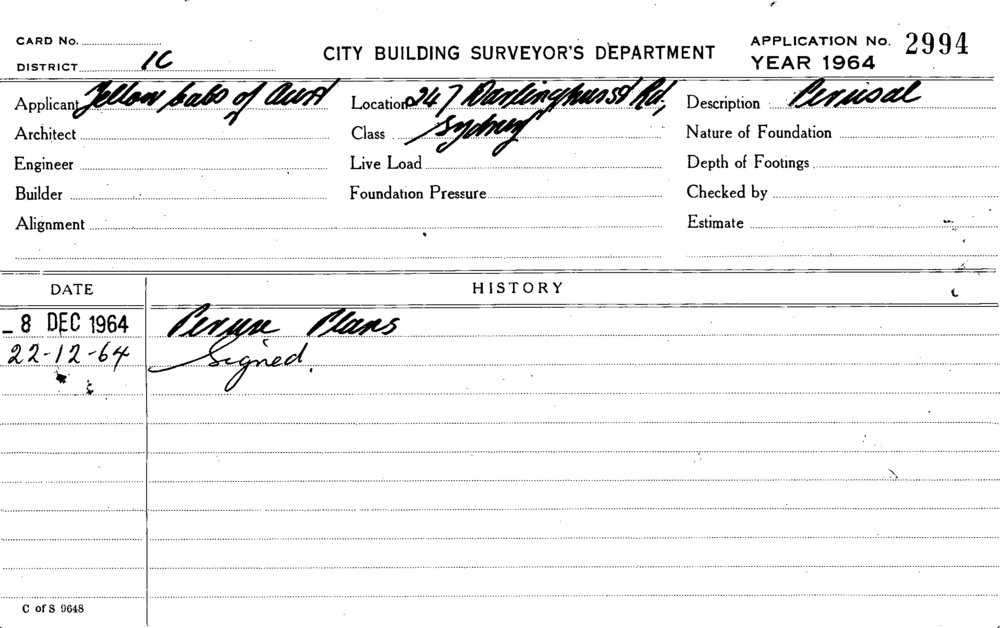 CARD No.
DISTRICT 1C
CITY BUILDING SURVEYOR'S DEPARTMENT
APPLICATION No. 2994
YEAR 1964
Applicant Yellow Cabs of Aust Location 247 Darlinghurst Rd, Description Perusal
Architect Class Sydney Nature of Foundation
Engineer Live Load Depth of Footings
Builder Foundation Pressure Checked by
Alignment Estimate
DATE HISTORY
8 DEC 1964 Peruse Plans
22-12-64 Signed.
C of S 9648